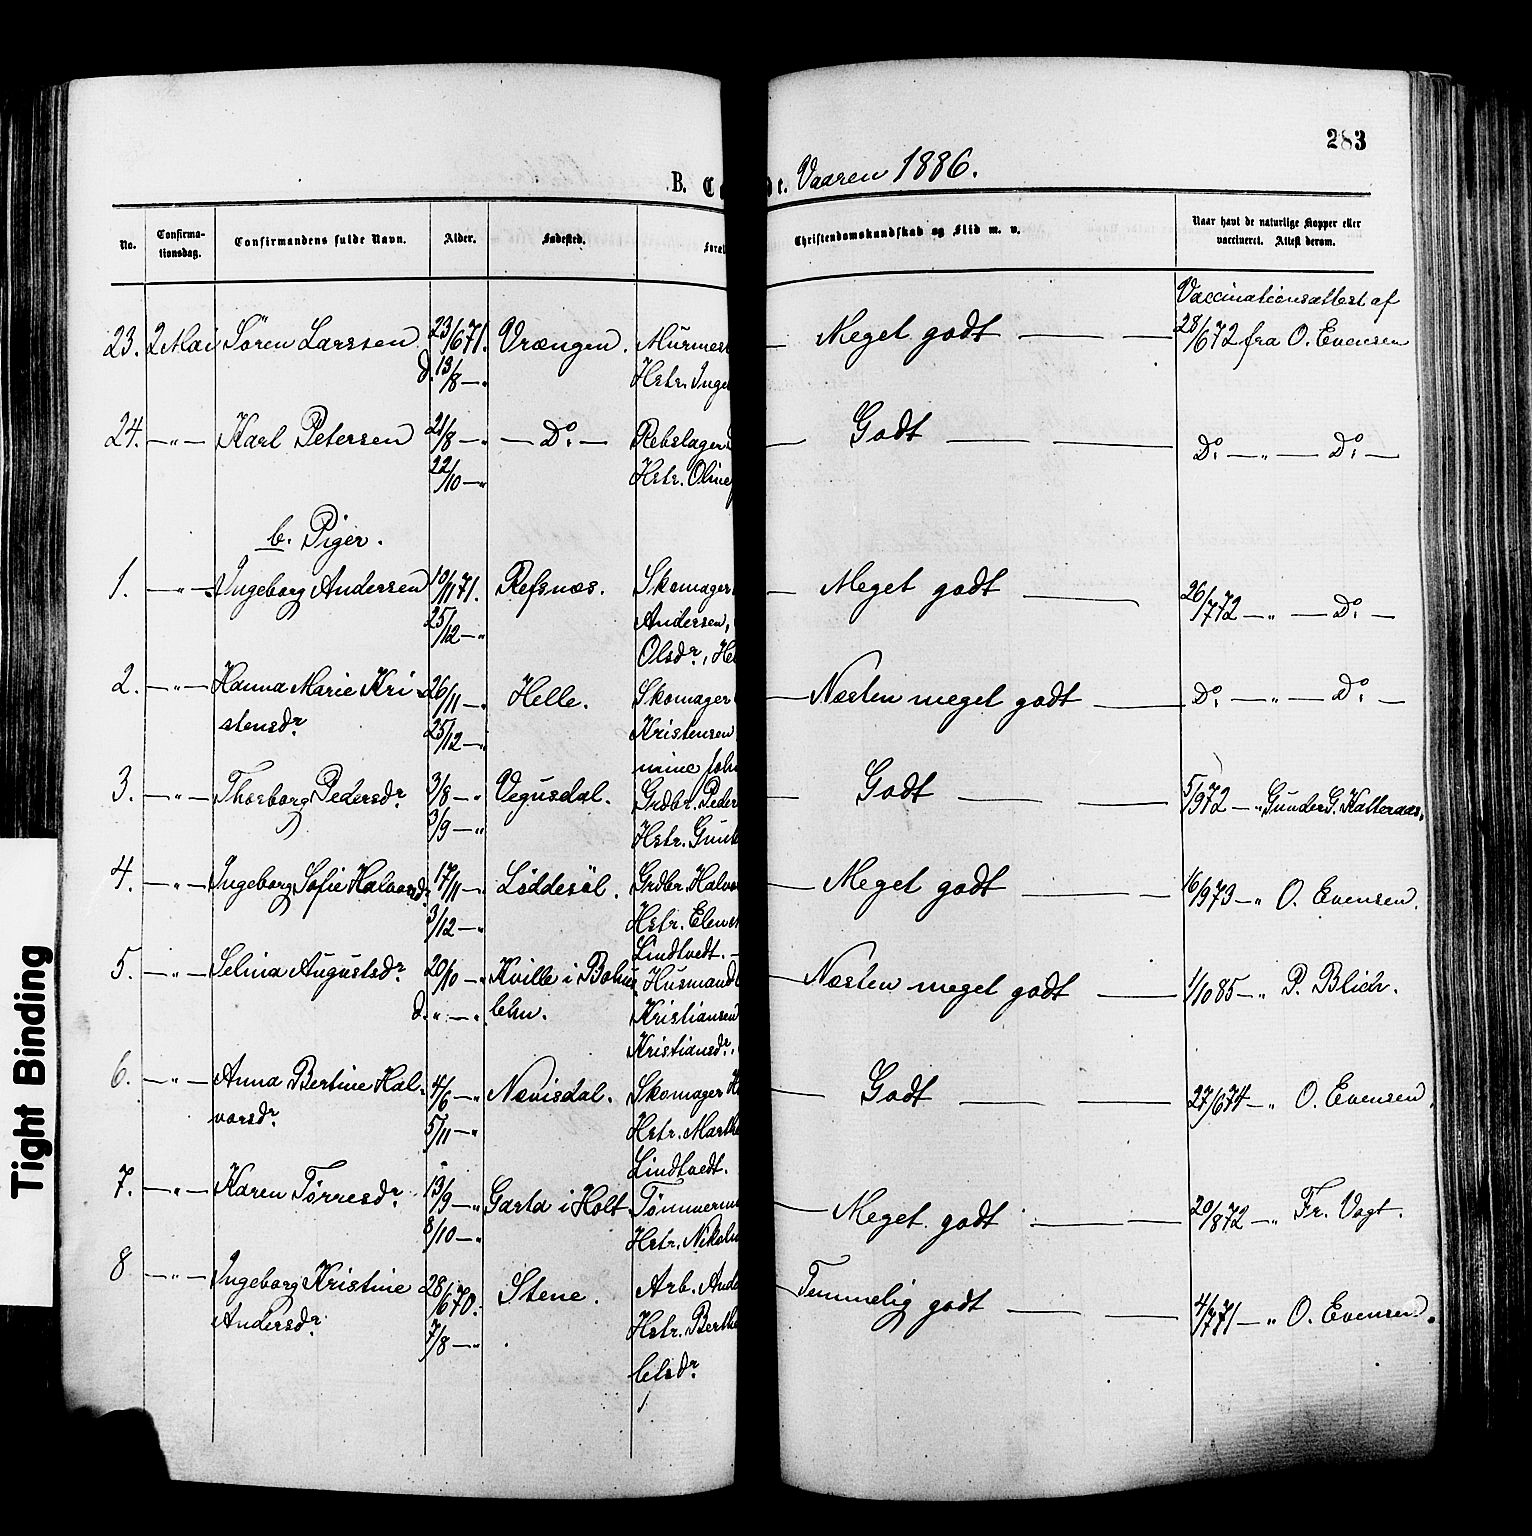 283
B. C
dt. Vaaren 1886.
No.
Confirma-
tionsdag.
Confirmandens fulde Navn.
Alder.
Fødested.
Foræl
Christendomskundskab og Flid m. v.
Naar havt de naturlige Kopper eller
vaccineret. Attest derom.
Vaccinationsattest af
23. 2 Mai Sören Larssen 23/6 71. Vrængen. Murmes — Meget godt — — 28/6 72 fra O. Evensen
d. 13/8 — „ Hstr. Inge
24. — „ — Karl Petersen 21/8 — „ — Do. — Rebslager — Godt — — Do. — „ — Do. —
22/10 — „ Hstr. Oline
b. Piger.
1. — „ — Ingeborg Andersen 10/11 71. Refsnæs. Skomager — Meget godt — 26/7 72 — „ — Do. —
25/12 — „ Andersen,
Olsdr., He
2. — „ — Hanna Marie Kri 26/11 — „ Helle. Skomager — Næsten meget godt — Do. — „ — Do. —
stensdr. 25/12 — „ Kristensen
mine Joh
3. — „ — Thorborg Pedersdr. 3/8 — „ Vegusdal. Grdbr. Peder — Godt — — 5/9 72 — „ Gunder G. Katteraas.
3/9 — „ Hstr. Gun
4. — „ — Ingeborg Sofie Halvorsdr. 17/11 — „ Löddesöl. Grdbr. Halvo — Meget godt — — 16/9 73 — „ O. Evensen.
3/12 — „ Hstr. Elen
Lindtvedt. —
5. — „ — Selina Augustsdr. 20/10 — „ Kville i Bohus Husmand — Næsten meget godt — 1/10 85 — „ P. Blich.
d. „ — „ lehn. Kristiansen
Kristiansdr.,
6. — „ — Anna Bertine Hal- 4/6 — „ Nævisdal. Skomager H — Godt — — 27/6 74 — „ O. Evensen.
vorsdr. 5/11 — „ Hstr. Marthe
Lindtvedt.
7. — „ — Karen Tørresdr. 13/9 — „ Garta i Holt Tømmerm — Meget godt — — 20/8 72 — „ Fr. Vogt.
3/10 — „ Hstr. Nikol
8 — „ — Ingeborg Kristine 28/6 70. Stene. Arb. Ande Temmelig godt — — 4/7 71 — „ O. Evensen.
Andersdr. 7/8 — „ Hstr. Berthe
lelsdr.
Tight Binding